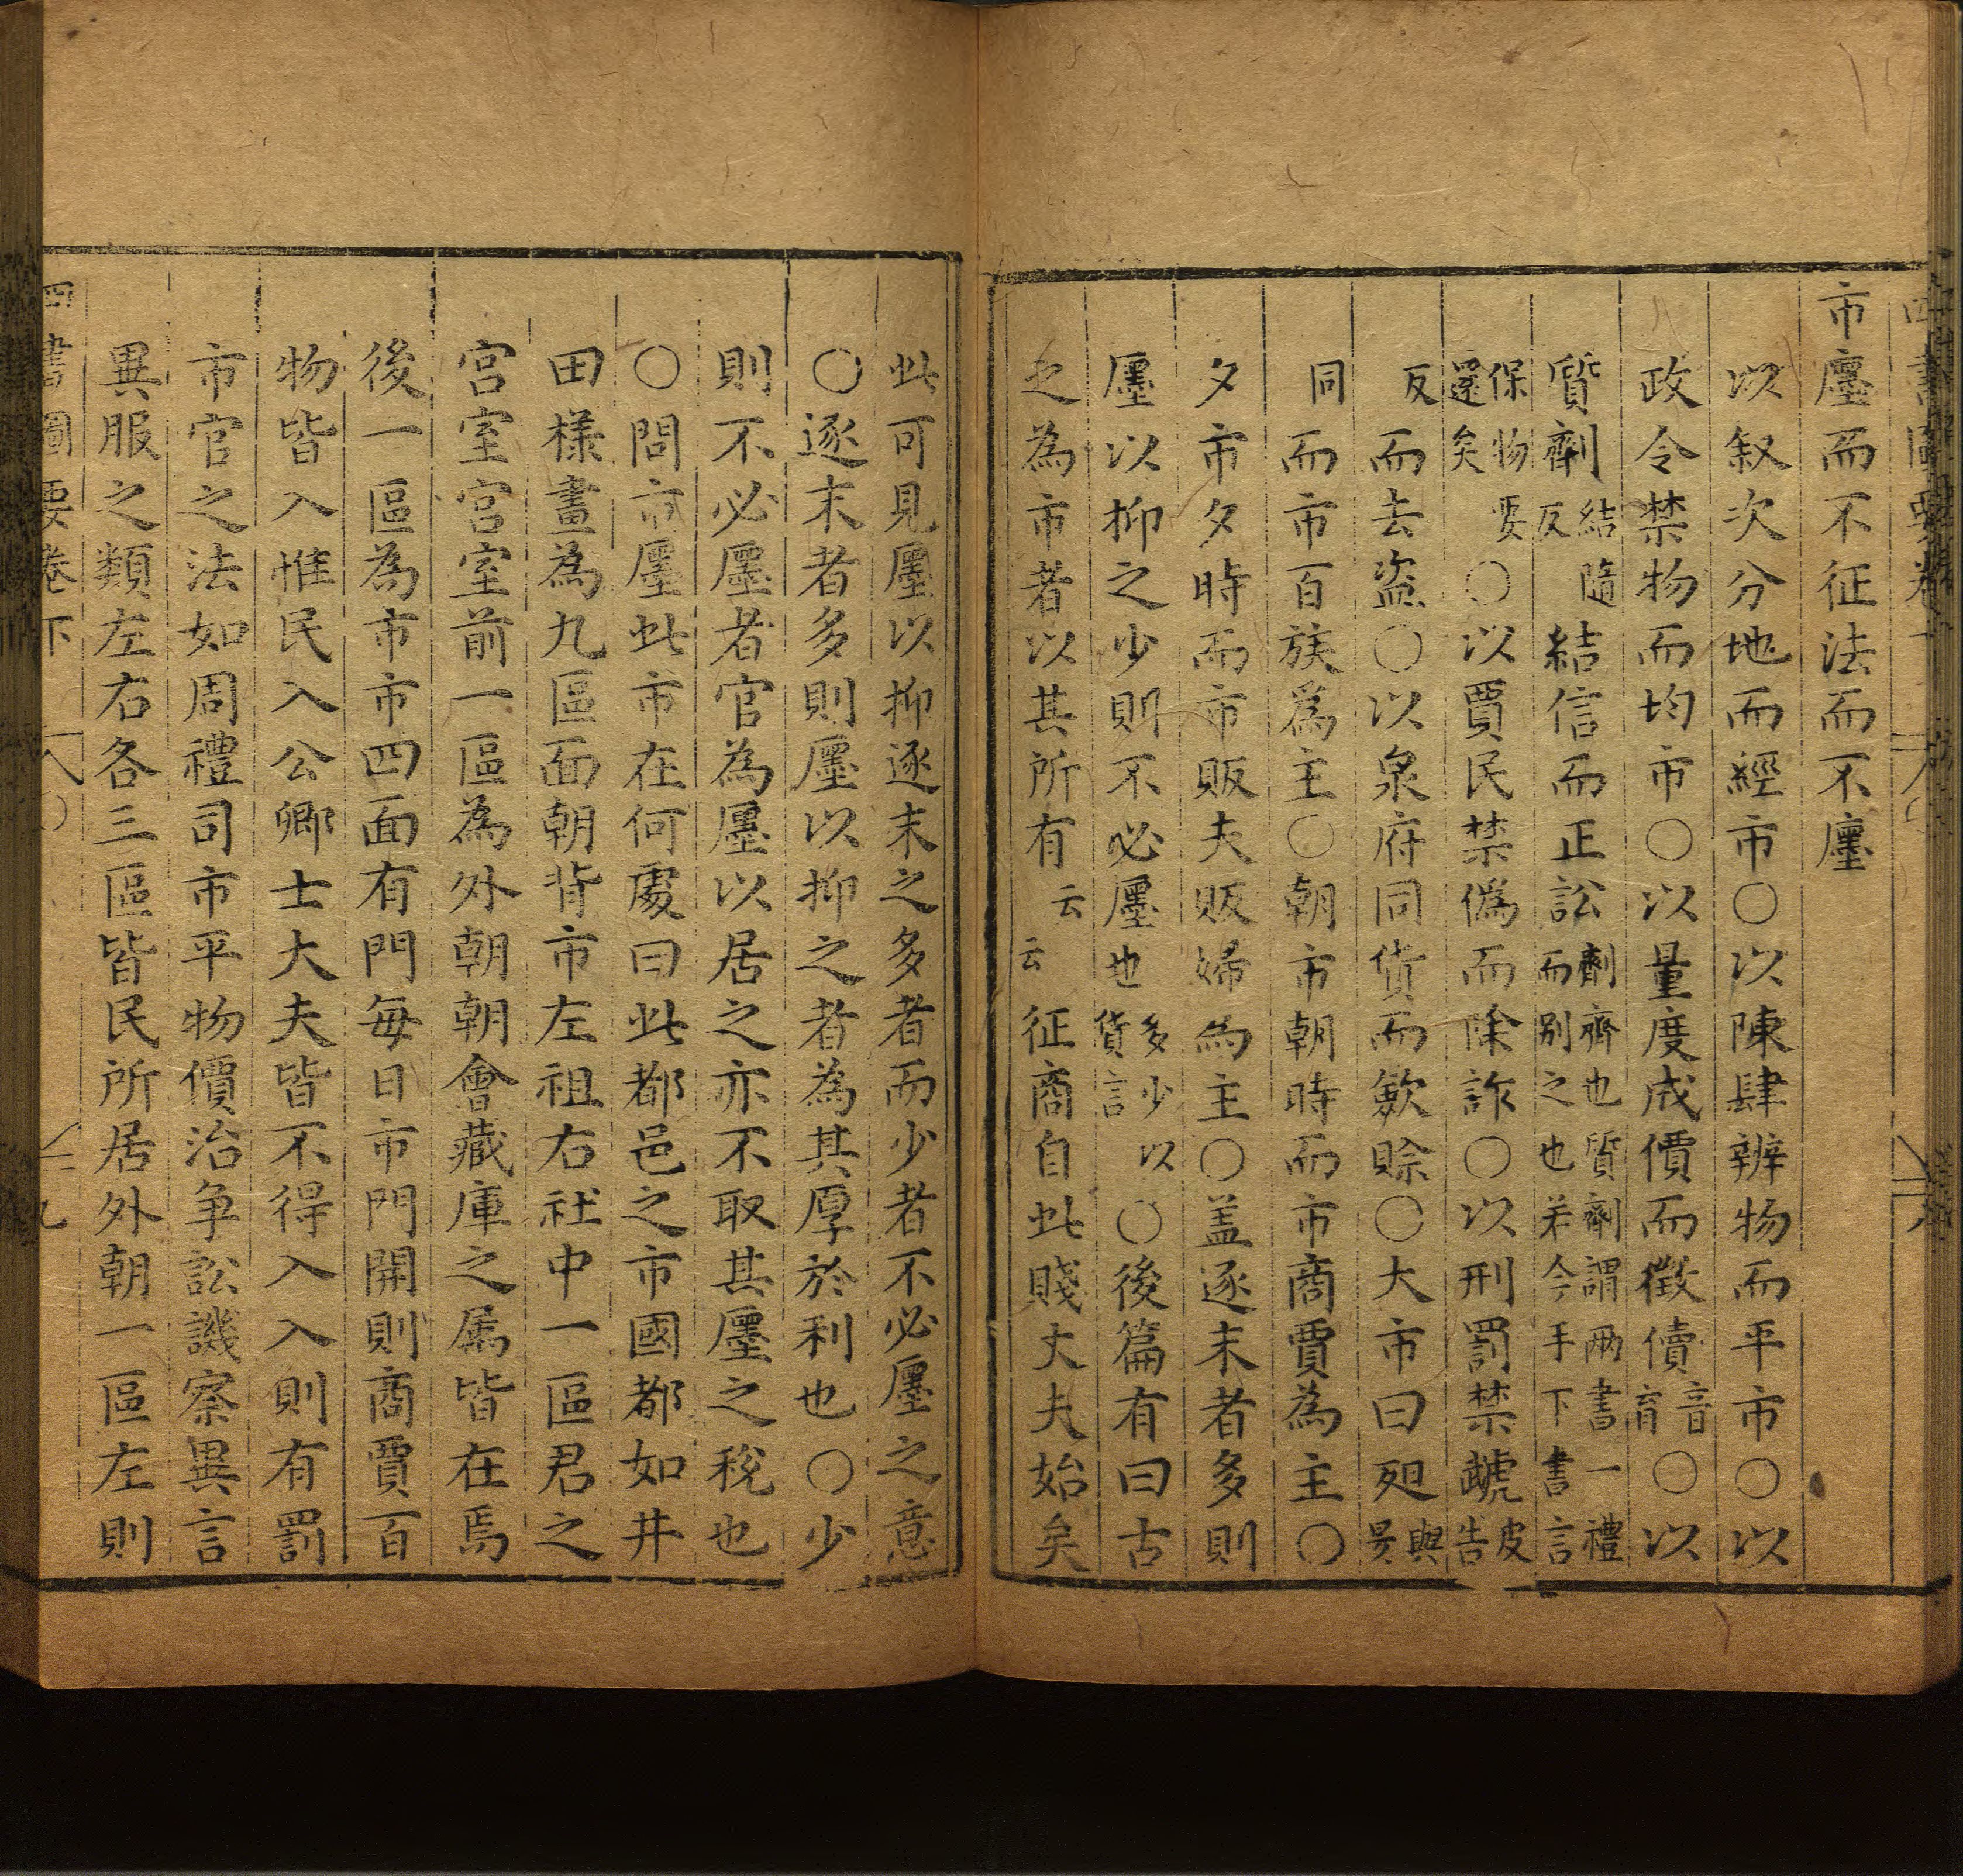 市廛而不征法而不廛
以叙次分地而經市○以陳肆辨物而平市○以
政令禁物而均市○以量度成價而徵儥音育○以
質劑結信而正訟
結隨反
劑齊也質劑謂兩書一禮
而别之也若今手下書言
保物要
還矣
○以賈民禁偽而除詐○以刑罰禁虣皮告
反而去盗○以泉府同貨而歛賒○大市曰昃與昊
同而市百族爲主○朝市朝時而市商賈為主○
夕市夕時而市販夫販婦為主○盖逐末者多則
廛以抑之少則不必廛也多少以貨言○後篇有曰古
之為市者以其所有云云征商自此賤丈夫始矣
此可見廛以抑逐末之多者而少者不必廛之意
○逐末者多則廛以抑之者為其厚於利也○少
則不必廛者官為廛以居之亦不取其廛之稅也
○問市廛此市在何處曰此都邑之市國都如井
田様畫為九區面朝背市左祖右社中一區君之
宮室宮室前一區為外朝朝會藏庫之属皆在焉
後一區為市市四面有門每日市門開則商賈百
物皆入惟民入公卿士大夫皆不得入入則有罰
市官之法如周禮司市平物價治争訟譏察異言
異服之類左右各三區皆民所居外朝一區左則
四書圖要卷下
九